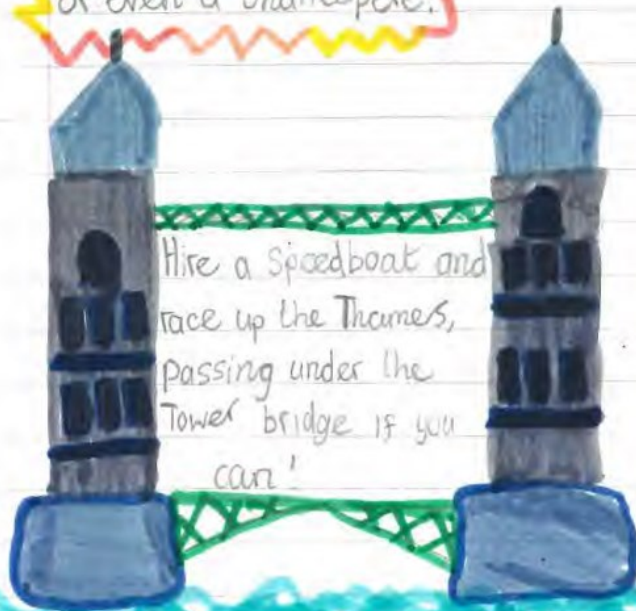 or even a
Hire a Speedboat and
race up the Thames,
passing under the
Tower bridge if you
can!